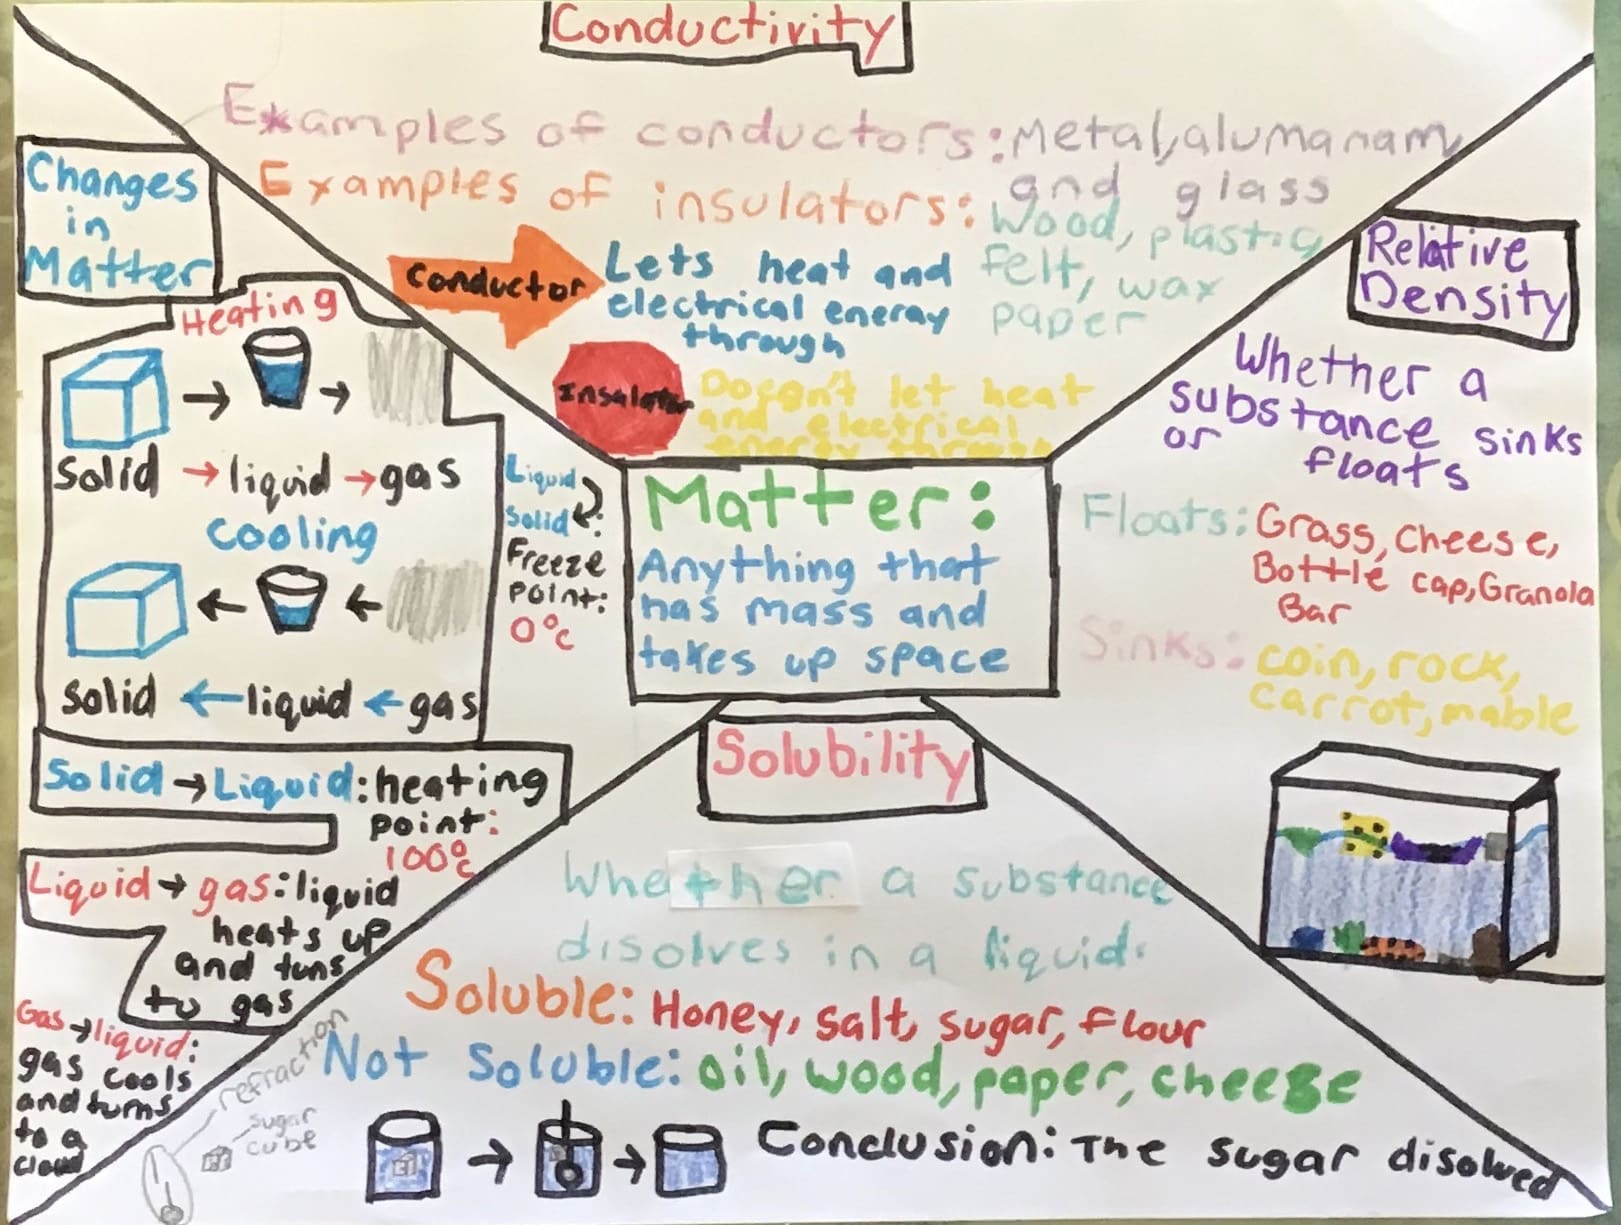 Conductivity
Examples of conductors: Metal, alumanam
and glass
Examples of insulators: Wood, plastic,
felt, wax
paper
Conductor
Lets heat and
electrical eneray
through
Insalator
Doesn't let heat
and electrical
energy through
Changes
in
Matter
Heating
Solid → liquid → gas
Cooling
Solid ← liquid ← gas
Liquid
Solid:
Freeze
point:
0°c
Solid → Liquid: heating
point:
100°c
Liquid → gas: liquid
heats up
and tuns
to gas
Gas → liquid:
gas cools
and turns
to a
cloud
Matter:
Anything that
has mass and
takes up space
Relative
Density
Whether a
substance sinks
or floats
Floats: Grass, Cheese,
Bottle cap, Granola
Bar
Sinks: coin, rock,
carrot, mable
Solubility
Whether a substance
disolves in a liquid.
Soluble: Honey, salt, sugar, flour
Not Soluble: oil, wood, paper, cheese
refraction
sugar
cube
Conclusion: The sugar disolved